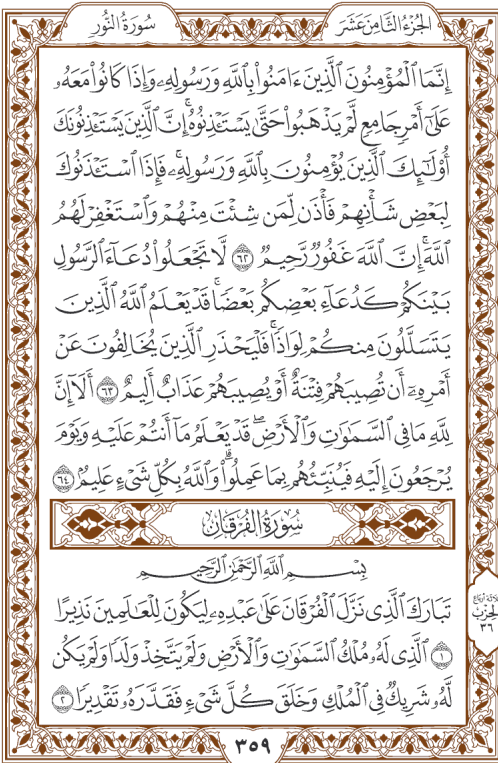 الجزء الثامن عشر
سورة النور
إِنَّمَا ٱلْمُؤْمِنُونَ ٱلَّذِينَ ءَامَنُوا۟ بِٱللَّهِ وَرَسُولِهِۦ وَإِذَا كَانُوا۟ مَعَهُۥ
عَلَىٰٓ أَمْرٍ جَامِعٍ لَّمْ يَذْهَبُوا۟ حَتَّىٰ يَسْتَـْٔذِنُوهُ ۚ إِنَّ ٱلَّذِينَ يَسْتَـْٔذِنُونَكَ
أُو۟لَـٰٓئِكَ ٱلَّذِينَ يُؤْمِنُونَ بِٱللَّهِ وَرَسُولِهِۦ ۚ فَإِذَا ٱسْتَـْٔذَنُوكَ
لِبَعْضِ شَأْنِهِمْ فَأْذَن لِّمَن شِئْتَ مِنْهُمْ وَٱسْتَغْفِرْ لَهُمُ
ٱللَّهَ ۚ إِنَّ ٱللَّهَ غَفُورٌ رَّحِيمٌ ٦٢ لَّا تَجْعَلُوا۟ دُعَآءَ ٱلرَّسُولِ
بَيْنَكُمْ كَدُعَآءِ بَعْضِكُم بَعْضًا ۚ قَدْ يَعْلَمُ ٱللَّهُ ٱلَّذِينَ
يَتَسَلَّلُونَ مِنكُمْ لِوَاذًا ۚ فَلْيَحْذَرِ ٱلَّذِينَ يُخَالِفُونَ عَنْ
أَمْرِهِۦٓ أَن تُصِيبَهُمْ فِتْنَةٌ أَوْ يُصِيبَهُمْ عَذَابٌ أَلِيمٌ ٦٣ أَلَآ إِنَّ
لِلَّهِ مَا فِى ٱلسَّمَـٰوَٰتِ وَٱلْأَرْضِ ۖ قَدْ يَعْلَمُ مَآ أَنتُمْ عَلَيْهِ وَيَوْمَ
يُرْجَعُونَ إِلَيْهِ فَيُنَبِّئُهُم بِمَا عَمِلُوا۟ ۗ وَٱللَّهُ بِكُلِّ شَىْءٍ عَلِيمٌۢ ٦٤
سُورَةُ الفُرْقَانِ
بِسْمِ ٱللَّهِ ٱلرَّحْمَـٰنِ ٱلرَّحِيمِ
تَبَارَكَ ٱلَّذِى نَزَّلَ ٱلْفُرْقَانَ عَلَىٰ عَبْدِهِۦ لِيَكُونَ لِلْعَـٰلَمِينَ نَذِيرًا
١ ٱلَّذِى لَهُۥ مُلْكُ ٱلسَّمَـٰوَٰتِ وَٱلْأَرْضِ وَلَمْ يَتَّخِذْ وَلَدًا وَلَمْ يَكُن
لَّهُۥ شَرِيكٌ فِى ٱلْمُلْكِ وَخَلَقَ كُلَّ شَىْءٍ فَقَدَّرَهُۥ تَقْدِيرًا ٢
ثلاثة أرباع
الحزب
٣٦
٣٥٩